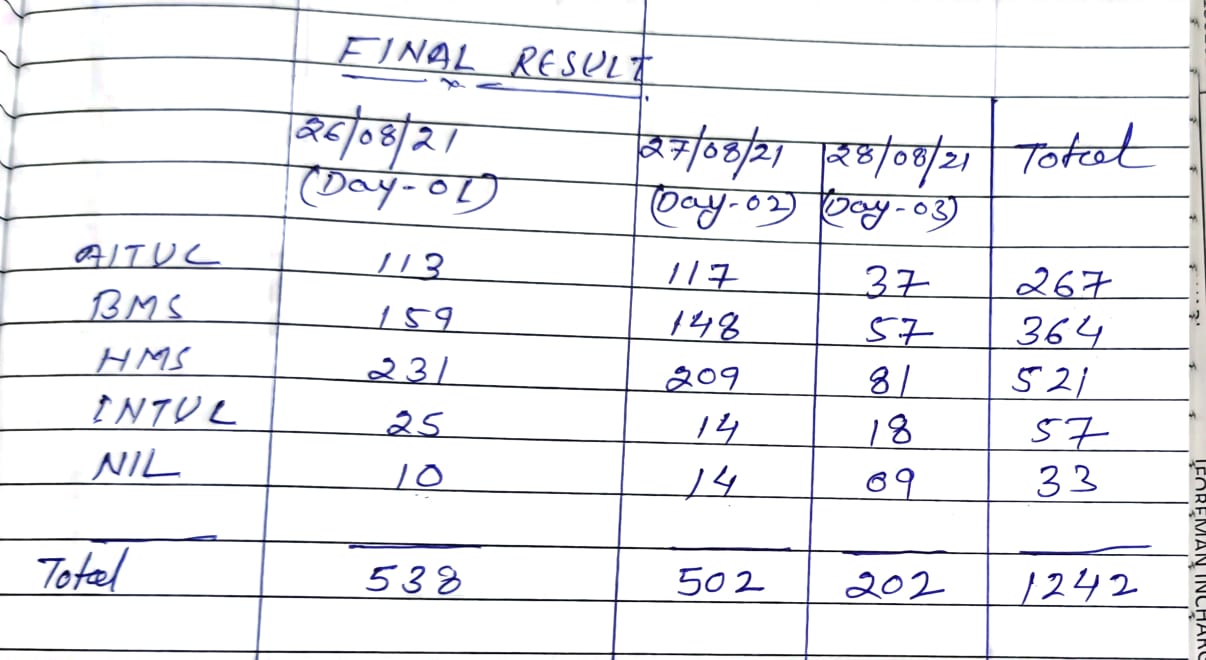 FINAL RESULT
26/08/21 27/08/21 28/08/21 Total
(Day-01) (Day-02) (Day-03)
AITUC 113 117 37 267
BMS 159 148 57 364
HMS 231 209 81 521
INTUC 25 14 18 57
NIL 10 14 09 33
Total 538 502 202 1242